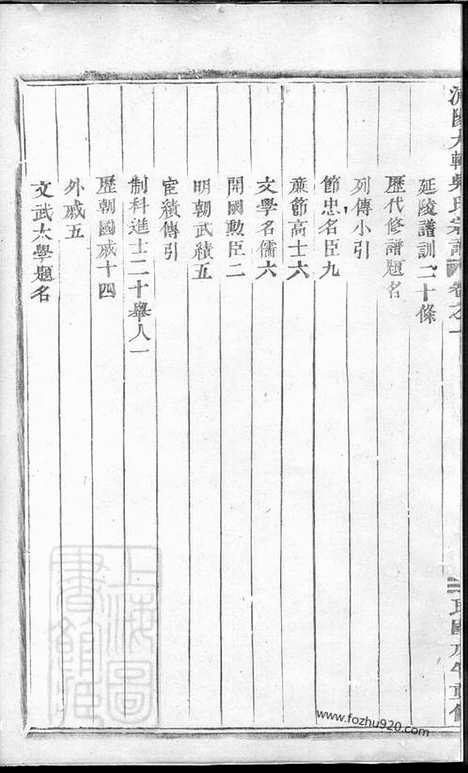 大 吳氏宗譜 卷之一
延陵譜訓二十條
歷代修譜題名
列傳小引
節忠名臣九
廉節高士六
文學名儒六
開國勳臣二
明朝武績五
宦績傳引
制科進士二十舉人一
歷朝國戚十四
外戚五
文武大學題名
民國 年重修
上海圖書館藏
www.fozhu920.com